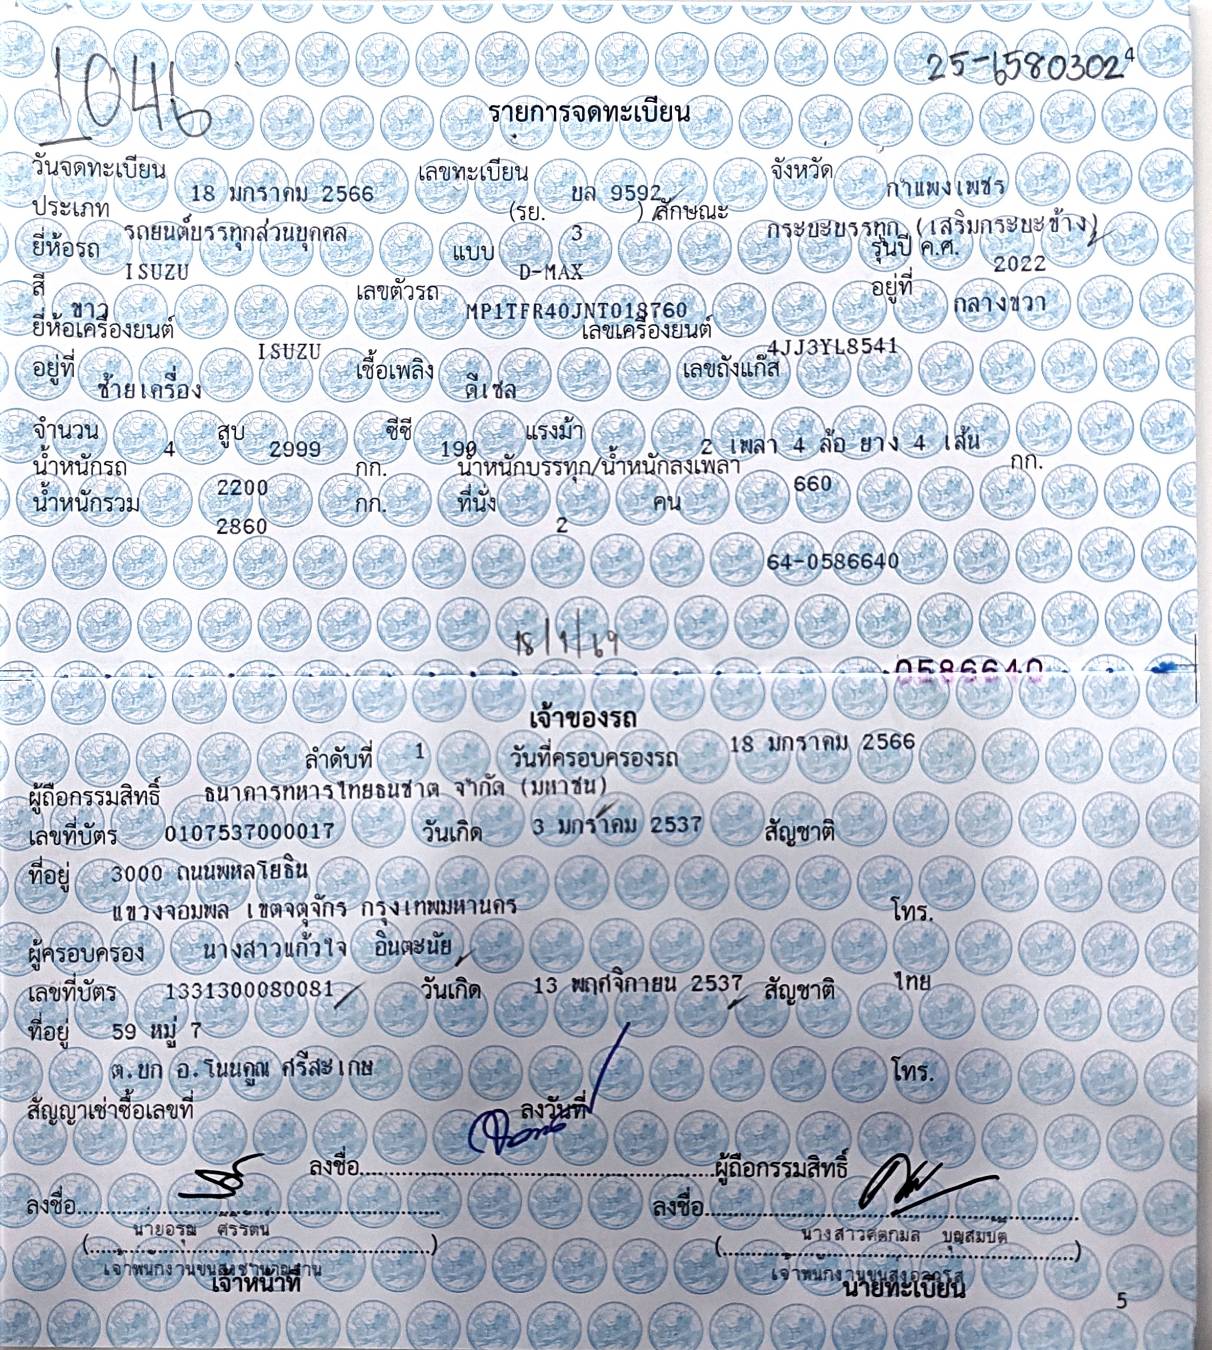 1046
25-65803024
รายการจดทะเบียน
วันจดทะเบียน 18 มกราคม 2566 เลขทะเบียน ขล 9592 จังหวัด กำแพงเพชร
ประเภท รถยนต์บรรทุกส่วนบุคคล (รย. 3 ) ลักษณะ กระบะบรรทุก (เสริมกระบะข้าง)
ยี่ห้อรถ ISUZU แบบ D-MAX รุ่นปี ค.ศ. 2022
สี ขาว เลขตัวรถ MP1TFR40JNT018760 อยู่ที่ กลางขวา
ยี่ห้อเครื่องยนต์ ISUZU เลขเครื่องยนต์ 4JJ3YL8541
อยู่ที่ ซ้ายเครื่อง เชื้อเพลิง ดีเซล เลขถังแก๊ส
จำนวน 4 สูบ 2999 ซีซี 190 แรงม้า 2 เพลา 4 ล้อ ยาง 4 เส้น
น้ำหนักรถ 2200 กก. น้ำหนักบรรทุก/น้ำหนักลงเพลา 660 กก.
น้ำหนักรวม 2860 กก. ที่นั่ง 2 คน
64-0586640
18/1/69
0586640
เจ้าของรถ
ลำดับที่ 1 วันที่ครอบครองรถ 18 มกราคม 2566
ผู้ถือกรรมสิทธิ์ ธนาคารทหารไทยธนชาต จำกัด (มหาชน)
เลขที่บัตร 0107537000017 วันเกิด 3 มกราคม 2537 สัญชาติ
ที่อยู่ 3000 ถนนพหลโยธิน
แขวงจอมพล เขตจตุจักร กรุงเทพมหานคร โทร.
ผู้ครอบครอง นางสาวแก้วใจ อินตะนัย
เลขที่บัตร 1331300080081 วันเกิด 13 พฤศจิกายน 2537 สัญชาติ ไทย
ที่อยู่ 59 หมู่ 7
ต.บก อ.โนนคูณ ศรีสะเกษ โทร.
สัญญาเช่าซื้อเลขที่ ลงวันที่
ลงชื่อ ผู้ถือกรรมสิทธิ์
ลงชื่อ ลงชื่อ
นายอรุณ ศรีรัตน์ นางสาวศตกมล บุญสมบัติ
เจ้าพนักงานขนส่งชำนาญงาน เจ้าพนักงานขนส่งอาวุโส
เจ้าหน้าที่ นายทะเบียน
5